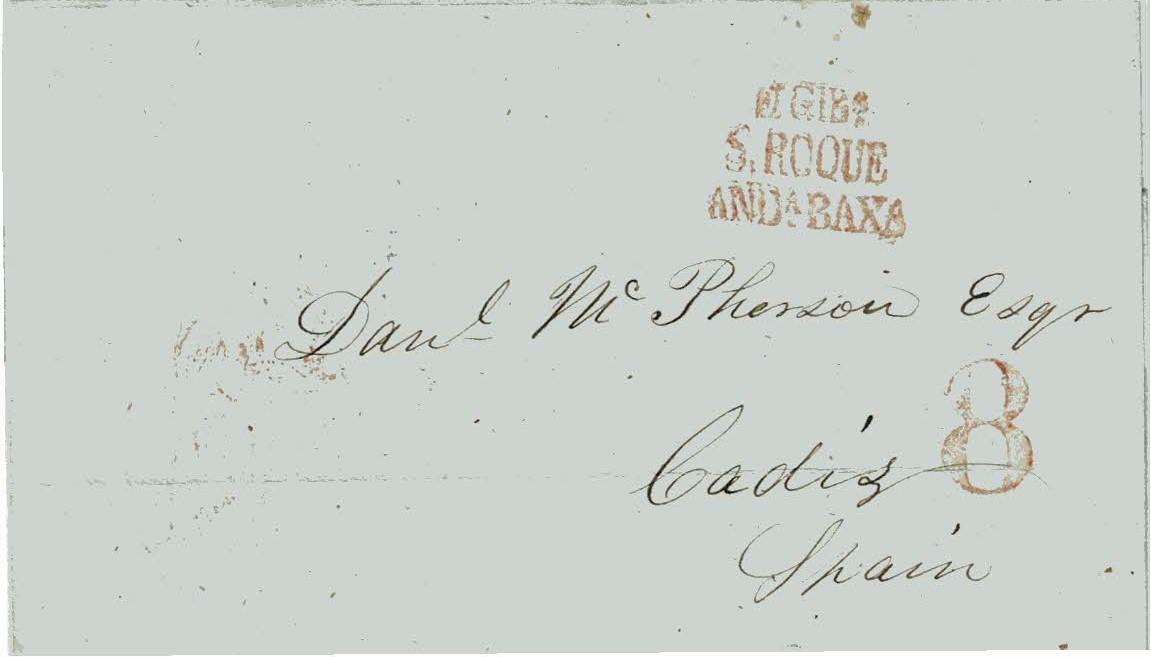 GIBR
S. ROQUE
ANDA BAXA
Danl Mc Pherson Esqr
8
Cadiz
Spain